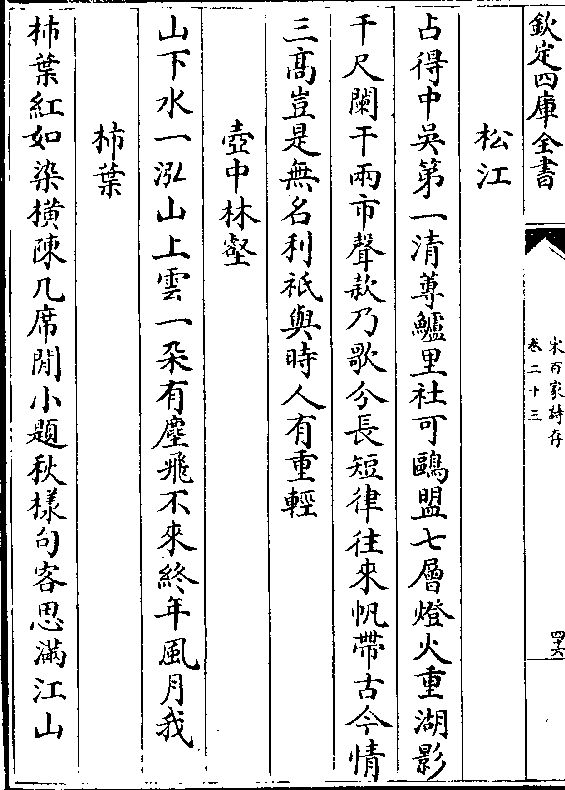 欽定四庫全書
宋百家詩存
卷二十三
四十六
松江
占得中吳第一清蓴鱸里社可鷗盟七層燈火重湖影
千尺闌干兩市聲欵乃歌分長短律往來帆帶古今情
三髙豈是無名利祇與時人有重輕
壺中林壑
山下水一泓山上雲一朵有塵飛不來終年風月我
柿葉
柿葉紅如染橫陳几席閒小題秋樣句客思滿江山